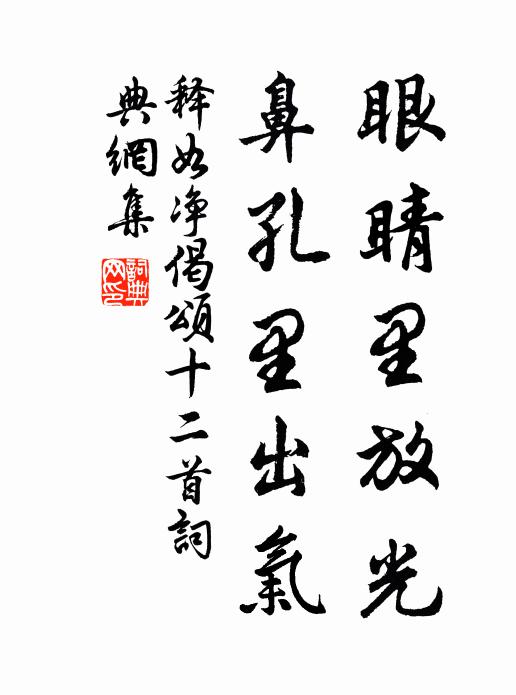 眼睛里放光
鼻孔里出氣
释如净偈頌十二首詞
典網集
詞典网印